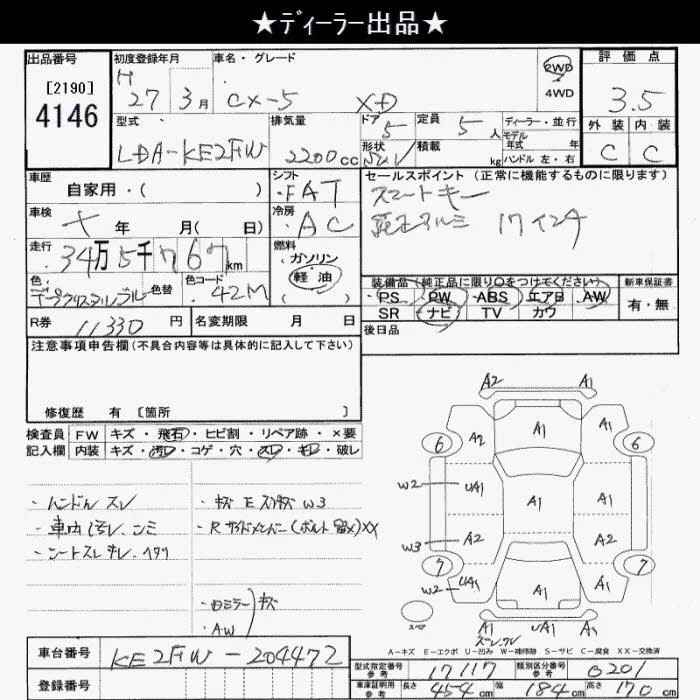 ★ディーラー出品★
出品番号 初度登録年月 車名・グレード 2WD 評価点
[2190] H 4WD
4146 27年 3月 CX-5 XD 3.5
型式 排気量 ドア 定員 ディーラー・並行 外装 内装
LDA-KE2FW 2200cc 5 5人 モデル年式 年 C C
形状 SUV 積載 kg ハンドル 左・右
車歴 シフト セールスポイント(正常に機能するものに限ります)
自家用・( ) FAT スマートキー
車検 冷房 純正アルミ 17インチ
年 月( 日) AC
走行 34万5千767km 燃料
ガソリン
軽油
( )
色 ディープクリスタルブルー 色替 色コード 42M
装備品(純正品に限り○をつけてください) 新車保証書
PS PW ABS エアB AW 有・無
SR ナビ TV カワ
R券 11330円 名変期限 月 日 後日品
注意事項申告欄(不具合内容等は具体的に記入して下さい)
修復歴 有 [箇所 ]
検査員 FW キズ・飛石・ヒビ割・リペア跡・×要
記入欄 内装 キズ・汚れ・コゲ・穴・スレ・キレ・破レ
・ハンドル スレ ・キズ E スリキズ W3
・車内 汚レ、シミ ・Rサイドメンバー(ボルト留メ)XX
・シートスレ キレ、ヘタリ
・Dミラー キズ
・AW
A2 A1
6 A2 A1 A1 6
W2 UA1 A1 A1
W3 A2 A2
7 W2 UA1 A1 A1 7
スペア A1 UA1 A1
ズレ、ワレ
A-キズ E-エクボ U-凹み W-補修跡 S-サビ C-腐食 XX-交換済
車台番号 KE2FW-204472
型式指定番号 参考 17117 類別区分番号 参考 0201
登録番号 車庫証明用 参考 長さ 454cm 幅 184cm 高さ 170cm